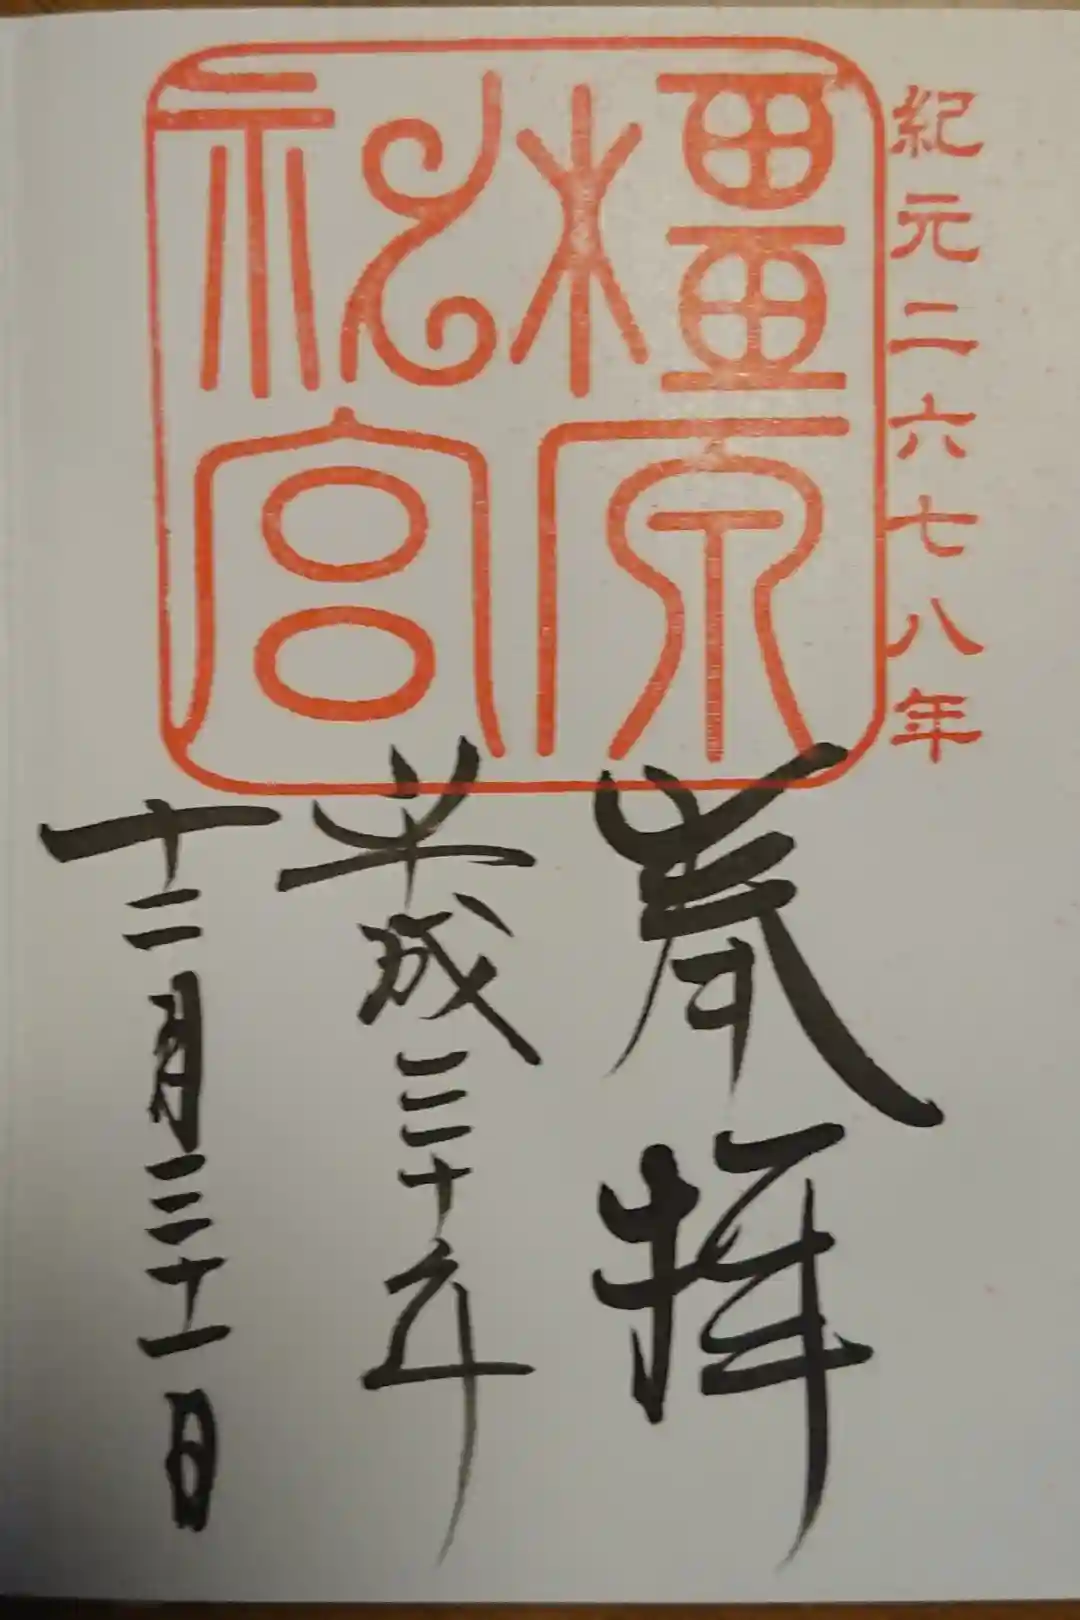 紀元二六七八年
橿原
神宮
奉拝
平成三十年
十二月三十一日